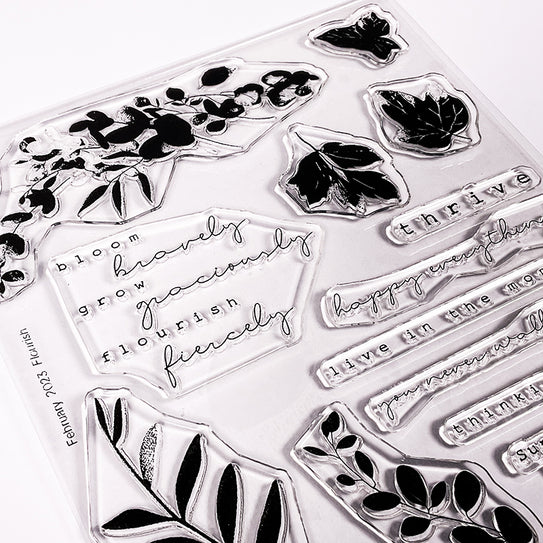 bloom bravely
grow graciously
flourish fiercely
thrive
happy everything
live in the mom
you never walk
thinki
Su
February 2023 Flourish